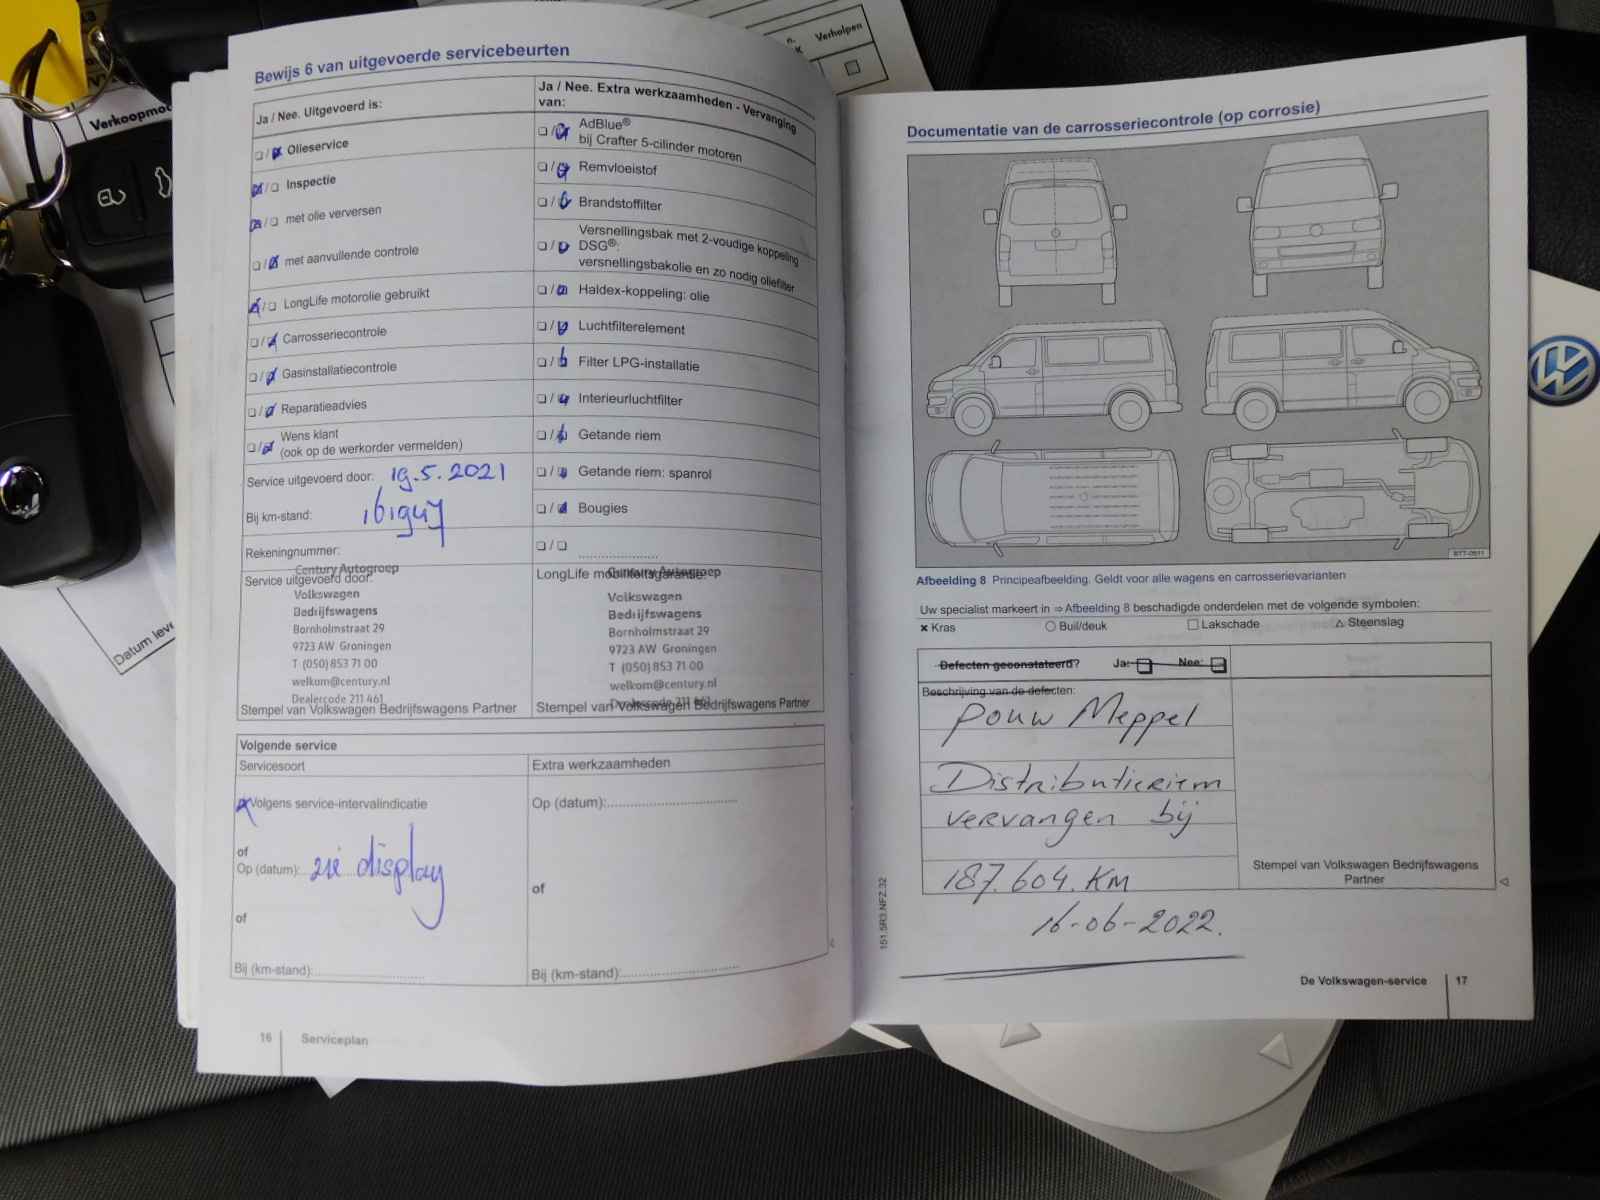 Verkoopmod
n.
Verholpen
Datum leve
Bewijs 6 van uitgevoerde servicebeurten
Ja / Nee. Uitgevoerd is:
Olieservice
Inspectie
met olie verversen
met aanvullende controle
LongLife motorolie gebruikt
Carrosseriecontrole
Gasinstallatiecontrole
Reparatieadvies
Wens klant
(ook op de werkorder vermelden)
Service uitgevoerd door: 19.5.2021
Bij km-stand:
Rekeningnummer:
Service uitgevoerd door:
Century Autogroep
Volkswagen
Bedrijfswagens
Bornholmstraat 29
9723 AW Groningen
T (050) 853 71 00
welkom@century.nl
Dealercode 211 461
Stempel van Volkswagen Bedrijfswagens Partner
Ja / Nee. Extra werkzaamheden - Vervanging
van:
AdBlue®
bij Crafter 5-cilinder motoren
Remvloeistof
Brandstoffilter
Versnellingsbak met 2-voudige koppeling
DSG®:
versnellingsbakolie en zo nodig oliefilter
Haldex-koppeling: olie
Luchtfilterelement
Filter LPG-installatie
Interieurluchtfilter
Getande riem
Getande riem: spanrol
Bougies
LongLife mobiliteitsgarantie:
Century Autogroep
Volkswagen
Bedrijfswagens
Bornholmstraat 29
9723 AW Groningen
T (050) 853 71 00
welkom@century.nl
Dealercode 211 461
Stempel van Volkswagen Bedrijfswagens Partner
Volgende service
Servicesoort
Volgens service-intervalindicatie
of
Op (datum): zie display
of
Bij (km-stand):
Extra werkzaamheden
Op (datum):
of
Bij (km-stand):
16 Serviceplan
Documentatie van de carrosseriecontrole (op corrosie)
B7T-0511
Afbeelding 8 Principeafbeelding. Geldt voor alle wagens en carrosserievarianten
Uw specialist markeert in ⇒ Afbeelding 8 beschadigde onderdelen met de volgende symbolen:
Kras Buil/deuk Lakschade Steenslag
Defecten geconstateerd? Ja: Nee:
Beschrijving van de defecten:
Pouw Meppel
Distributieriem
vervangen bij
187.604.KM
16-06-2022.
Stempel van Volkswagen Bedrijfswagens
Partner
151.5R3.NFZ.32
De Volkswagen-service 17